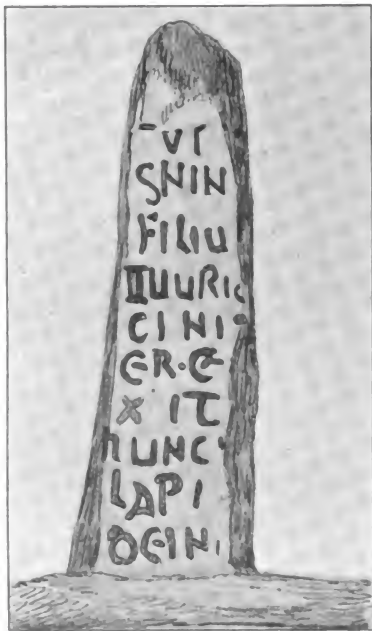 VT
SNIN
FILIU
IIUURIC
CINI
ER·E
X IT
hUNC
LAPI
DEIN